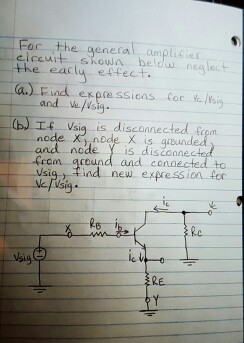 For the general amplifier
circuit shown below neglect
the early effect.
(a.) Find expressions for Vc/Vsig
and Ve/Vsig.
(b.) If Vsig is disconnected from
node X, node X is grounded,
and node Y is disconnected
from ground and connected to
Vsig, find new expression for
Vc/Vsig.
ic
Vc
X
RB
ib
RC
Vsig
ic
RE
Y